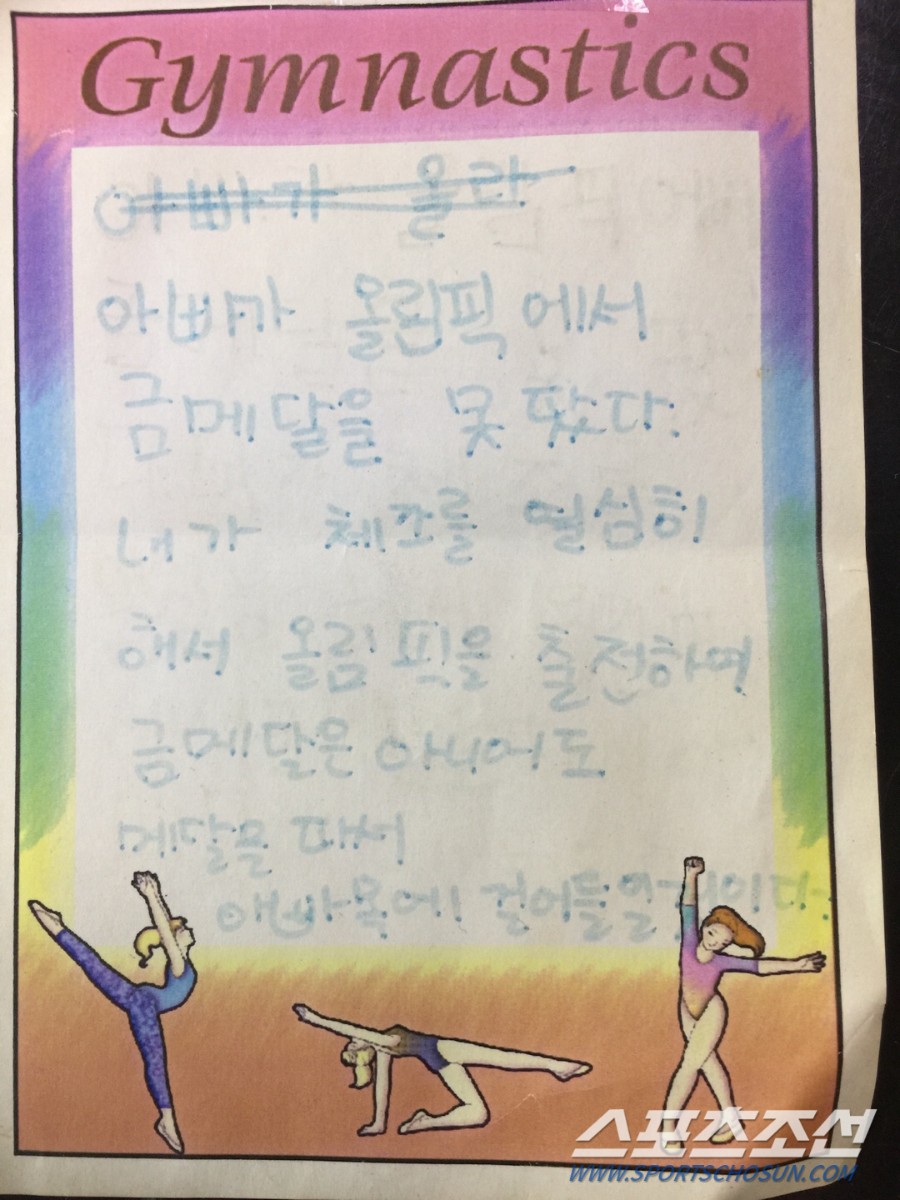 Gymnastics
아빠가 올란
아빠가 올림픽에서
금메달을 못 땄다.
내가 체조를 열심히
해서 올림픽을 출전하여
금메달은 아니어도
메달을 따서
아빠목에 걸어들일것이다.
스포츠조선
WWW.SPORTSCHOSUN.COM